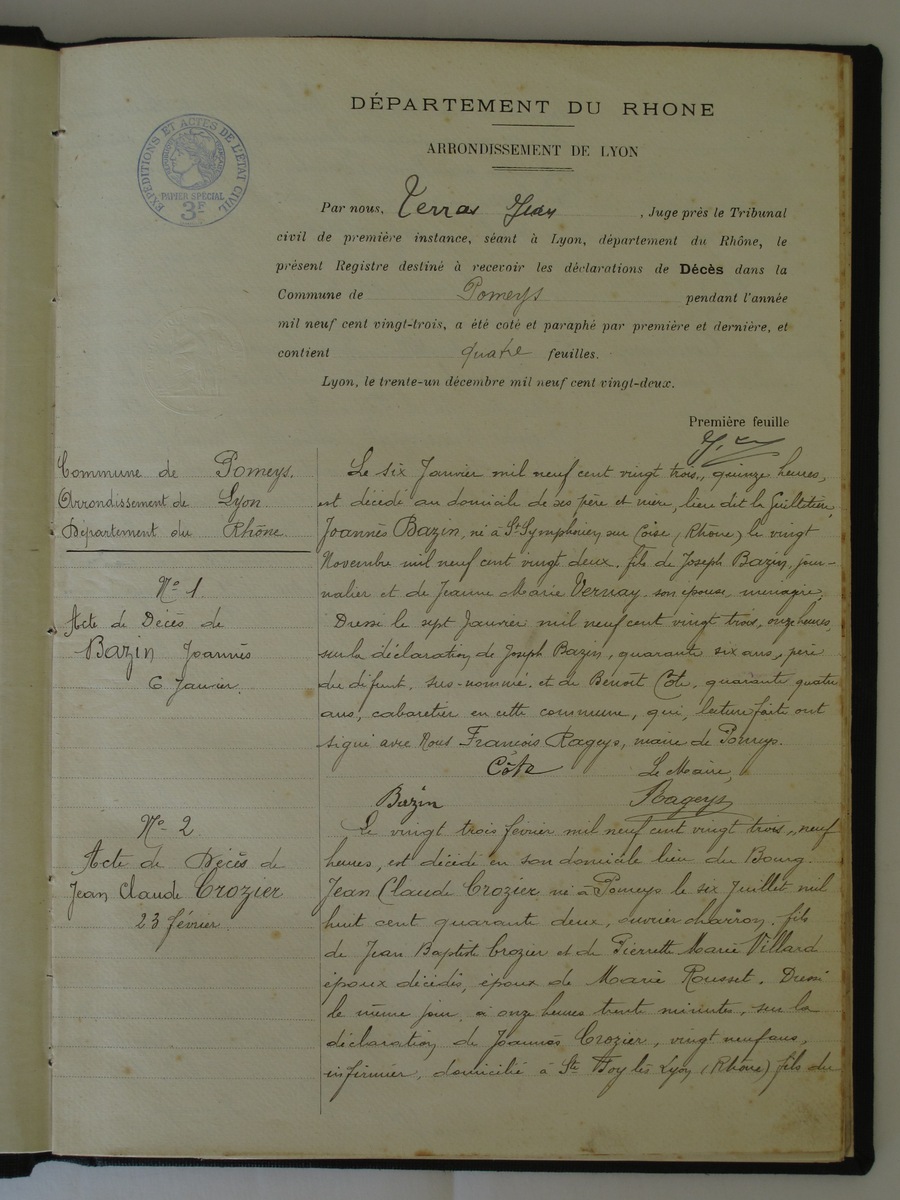 DÉPARTEMENT DU RHONE
ARRONDISSEMENT DE LYON
EXPÉDITIONS ET ACTES DE L'ÉTAT CIVIL
PAPIER SPÉCIAL
3F
Par nous, Terras Jean, Juge près le Tribunal
civil de première instance, séant à Lyon, département du Rhône, le
présent Registre destiné à recevoir les déclarations de Décès dans la
Commune de Pomeys pendant l'année
mil neuf cent vingt-trois, a été coté et paraphé par première et dernière, et
contient quatre feuilles.
Lyon, le trente-un décembre mil neuf cent vingt-deux.
Première feuille
Commune de Pomeys.
Arrondissement de Lyon
Département du Rhône.
No 1.
Acte de Décès de
Bazin Joannès
6 Janvier.
Le six Janvier mil neuf cent vingt trois,, quinze heures,
est décédé au domicile de ses père et mère, lieu dit la
Joannès Bazin, né à St Symphorien sur Coise, (Rhône) le vingt
Novembre mil neuf cent vingt deux, fils de Joseph Bazin, jour-
nalier et de Jeanne Marie Vernay son épouse, ménagère,
Dressé le sept Janvier mil neuf cent vingt trois, onze heures,
sur la déclaration de Joseph Bazin, quarante six ans, père
du défunt, sus-nommé. et de Benoît Côte, quarante quatre
ans, cabaretier en cette commune, qui, lecture faite ont
signé avec Nous François Rageys, maire de Pomeys.
Côte Le Maire,
Bazin Rageys
No 2
Acte de Décès de
Jean Claude Crozier
23 février
Le vingt trois février mil neuf cent vingt trois,, neuf
heures, est décédé en son domicile lieu du Bourg.
Jean Claude Crozier né à Pomeys le six Juillet mil
huit cent quarante deux, ouvrier charron, fils
de Jean Baptist Crozier et de Pierrette Marie Villard
époux décédés, époux de Marie Rousset. Dressé
le même jour, à onze heures trente minutes, sur la
déclaration de Joannès Crozier, vingt neuf ans,
infirmier, domicilié à Ste Foy lès Lyon (Rhône) fils du